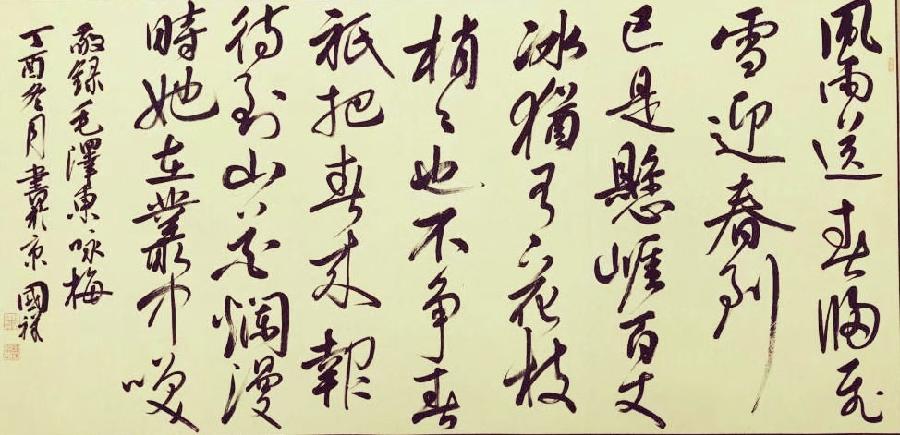 風雨送春歸飛
雪迎春到
已是懸崖百丈
冰猶有花枝
梢〻也不争春
祇把春來報
待到山花爛漫
時她在叢中咲
敬録毛澤東咏梅
丁酉冬月書於京 國祥